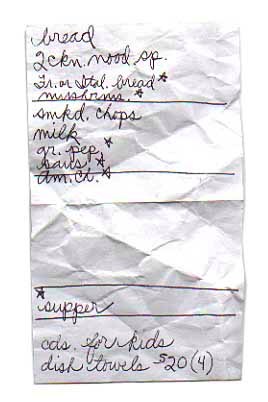 bread
2 ckn. nood. sp.
Fr. or Ital. bread*
mushrms.
smkd. chops
milk
gr. pep.*
saus.*
Am. ch.*
*
supper
cds. for kids
dish towels $20 (4)